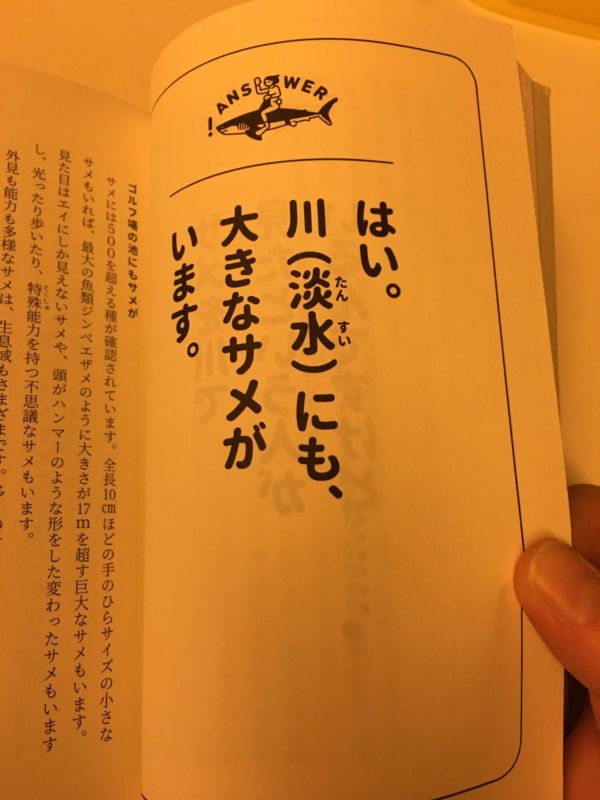 ANSWER!
はい。
川(淡水)にも、
たん すい
大きなサメが
います。
ゴルフ場の池にもサメが
サメには500を超える種が確認されています。全長10㎝ほどの手のひらサイズの小さな
サメもいれば、最大の魚類ジンベエザメのように大きさが17mを超す巨大なサメもいます。
見た目はエイにしか見えないサメや、頭がハンマーのような形をした変わったサメもいます
し、光ったり歩いたり、特殊能力を持つ不思議なサメもいます。
とくしゅ
外見も能力も多様なサメは、生息域もさまざまです。